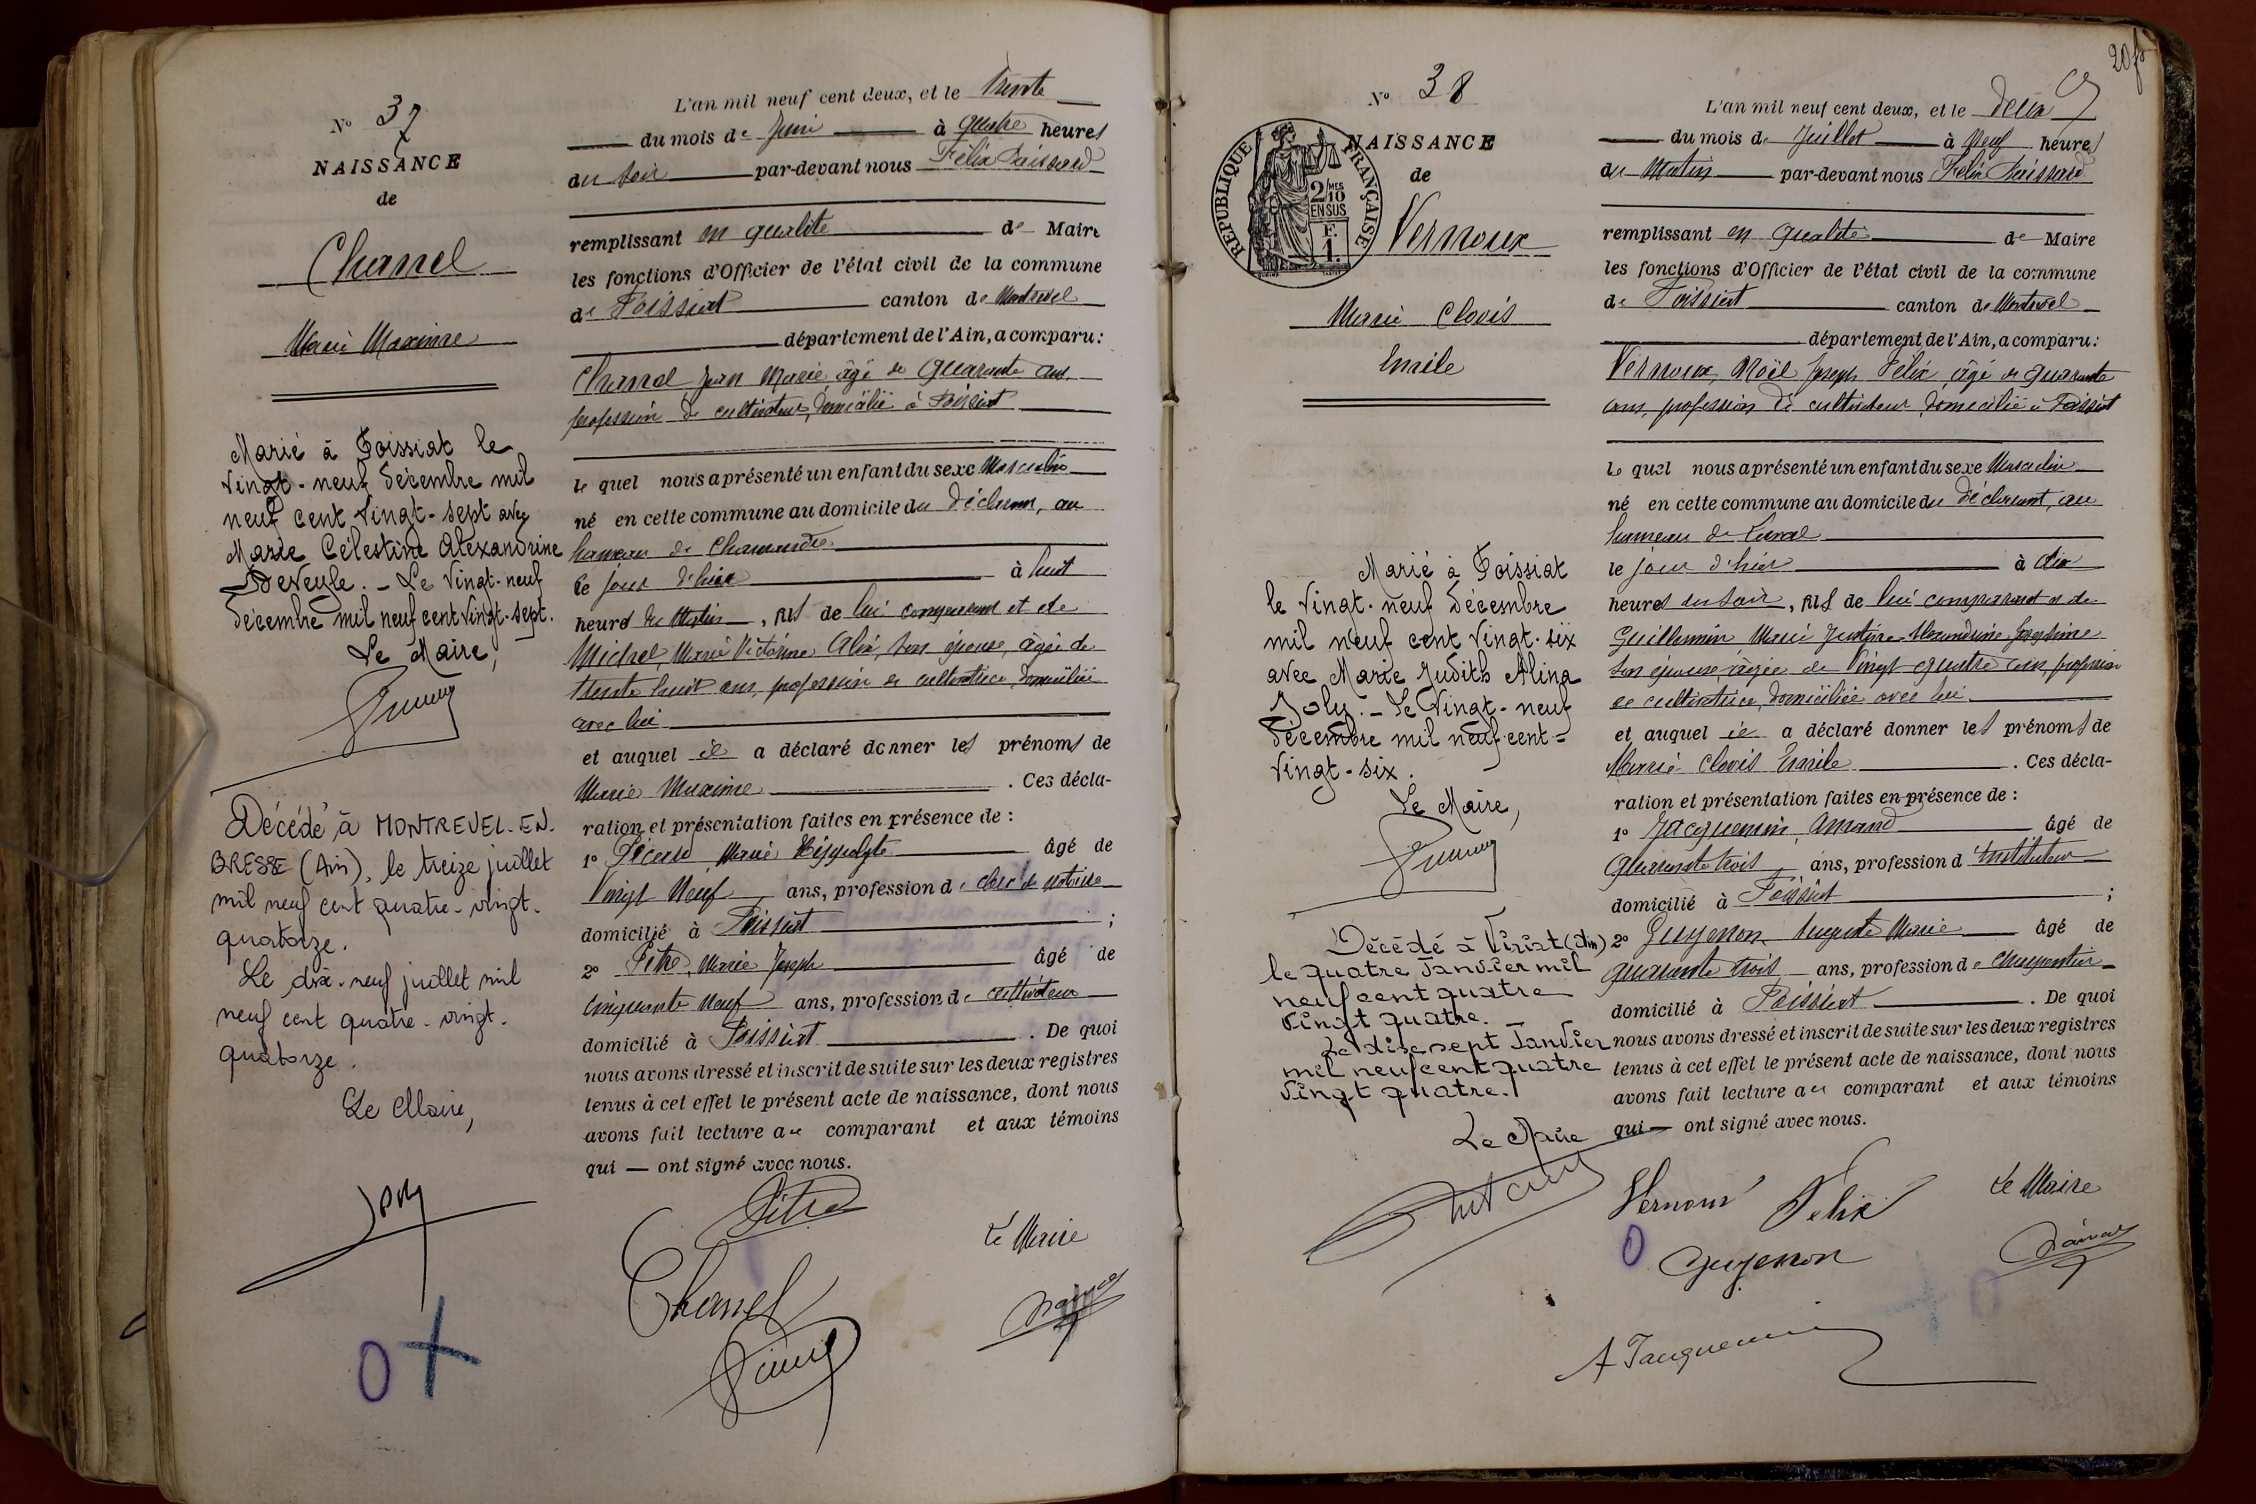 N° 37
NAISSANCE
de
Chanel
Marie Maxime
Marié à Foissiat le
vingt-neuf décembre mil
neuf cent vingt-sept avec
Marie Célestine Alexandrine
Deveyle. - Le vingt-neuf
décembre mil neuf cent vingt-sept.
Le Maire,
Décédé à MONTREVEL-EN-
BRESSE (Ain), le treize juillet
mil neuf cent quatre-vingt-
quatorze.
Le dix-neuf juillet mil
neuf cent quatre-vingt-
quatorze.
Le Maire,
L'an mil neuf cent deux, et le trente
du mois de Juin à quatre heures
du soir par-devant nous Félix
remplissant en qualité de Maire
les fonctions d'Officier de l'état civil de la commune
de Foissiat canton de Montrevel
département de l'Ain, a comparu:
Chanel Jean Marie âgé de quarante ans
profession de cultivateur, domicilié à Foissiat
le quel nous a présenté un enfant du sexe Masculin
né en cette commune au domicile du déclarant, au
hameau de
le jour d'hier à huit
heures du Matin, fils de lui comparant et de
Michel, Marie Victorine Alix, son épouse, âgée de
trente huit ans, profession de cultivatrice, domiciliée
avec lui
et auquel il a déclaré donner les prénoms de
Marie Maxime . Ces décla-
ration et présentation faites en présence de :
1° Marie Hippolyte âgé de
Vingt Neuf ans, profession de clerc de notaire
domicilié à Foissiat ;
2° Pitre, Marie Joseph âgé de
cinquante neuf ans, profession de cultivateur
domicilié à Foissiat . De quoi
nous avons dressé et inscrit de suite sur les deux registres
tenus à cet effet le présent acte de naissance, dont nous
avons fait lecture au comparant et aux témoins
qui — ont signé avec nous.
Pitre
Le Maire
Chanel
0 +
20 f
N° 38
NAISSANCE
de
RÉPUBLIQUE FRANÇAISE
2/10 MES
EN SUS
F.
1.
Vernoux
Marie Clovis
Emile
Marié à Foissiat
le vingt-neuf décembre
mil neuf cent vingt-six
avec Marie Judith Alina
Joly. - Le vingt-neuf
décembre mil neuf cent-
vingt-six.
Le Maire,
Décédé à Viriat (Ain)
le quatre Janvier mil
neuf cent quatre
vingt quatre.
Le dix sept Janvier
mil neuf cent quatre
vingt quatre.
Le Maire
L'an mil neuf cent deux, et le deux
du mois de Juillet à Neuf heures
du Matin par-devant nous Félix
remplissant en qualité de Maire
les fonctions d'Officier de l'état civil de la commune
de Foissiat canton de Montrevel
département de l'Ain, a comparu:
Vernoux, Noël Joseph Félix, âgé de quarante
ans, profession de cultivateur, domicilié à Foissiat
le quel nous a présenté un enfant du sexe Masculin
né en cette commune au domicile du déclarant, au
hameau de
le jour d'hier à dix
heures du soir, fils de lui comparant et de
Guillemin Marie Justine Alexandrine Joséphine
son épouse, âgée de Vingt quatre ans, profession
de cultivatrice, domiciliée avec lui
et auquel il a déclaré donner les prénoms de
Marie Clovis Emile . Ces décla-
ration et présentation faites en présence de :
1° Jacquemin, Amand âgé de
quarante trois ans, profession d'instituteur
domicilié à Foissiat ;
2° Guyenon, Auguste Marie âgé de
quarante trois ans, profession de charpentier
domicilié à Foissiat . De quoi
nous avons dressé et inscrit de suite sur les deux registres
tenus à cet effet le présent acte de naissance, dont nous
avons fait lecture au comparant et aux témoins
qui — ont signé avec nous.
Vernoux Félix
Le Maire
0 Guyenon
A Jacquemin